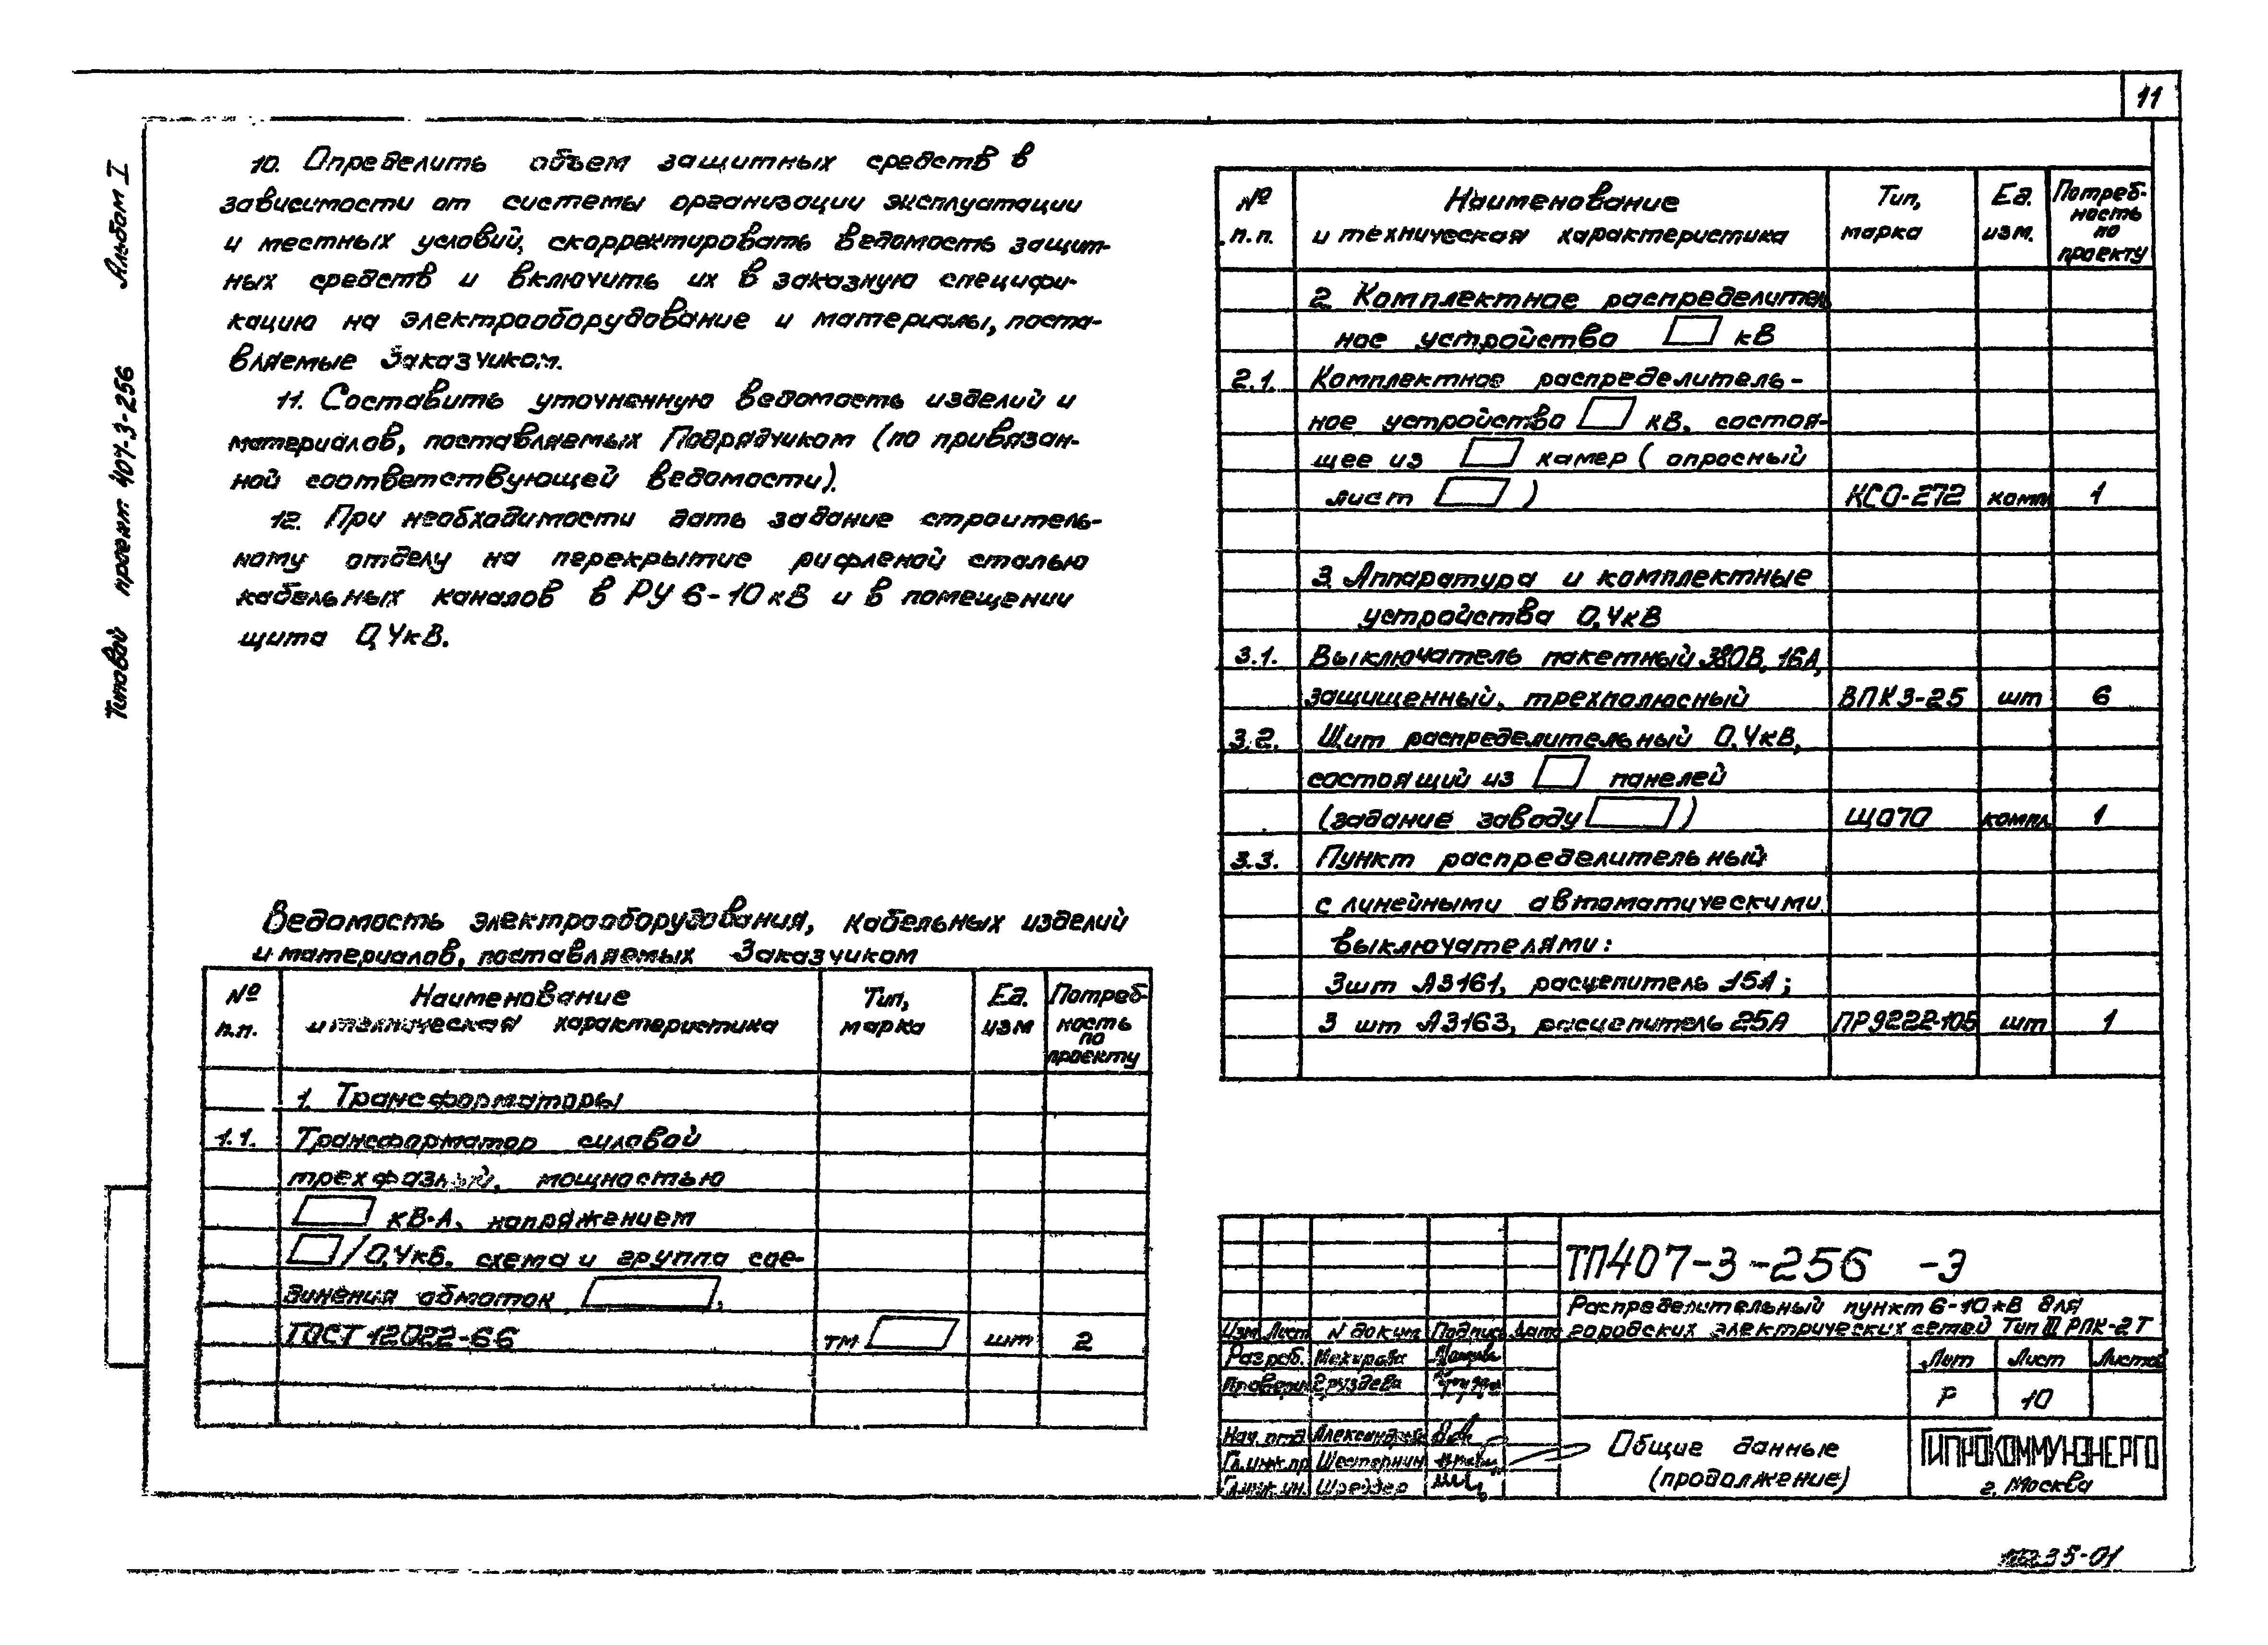 11
Альбом I
Типовой проект 407-3-256
10. Определить объем защитных средств в
зависимости от системы организации эксплуатации
и местных условий, скорректировать ведомость защит-
ных средств и включить их в заказную специфи-
кацию на электрооборудование и материалы, поста-
вляемые Заказчиком.
11. Составить уточненную ведомость изделий и
материалов, поставляемых Подрядчиком (по привязан-
ной соответствующей ведомости).
12. При необходимости дать задание строитель-
ному отделу на перекрытие рифленой сталью
кабельных каналов в РУ 6-10кВ и в помещении
щита 0,4кВ.
Ведомость электрооборудования, кабельных изделий
и материалов, поставляемых Заказчиком
№ п.п. Наименование и техническая характеристика Тип, марка Ед. изм Потреб- ность по проекту
1. Трансформаторы
1.1. Трансформатор силовой
трехфазный, мощностью
кВ-А, напряжением
/0,4кВ, схема и группа сое-
динения обмоток ,
ГОСТ 12022-66 ТМ шт 2
№ п.п. Наименование и техническая характеристика Тип, марка Ед. изм. Потреб- ность по проекту
2 Комплектное распределитель
ное устройство кВ
2.1. Комплектное распределитель-
ное устройство кВ, состоя-
щее из камер (опросный
лист ) КСО-272 комп 1
3. Аппаратура и комплектные
устройства 0,4кВ
3.1. Выключатель пакетный 380В, 16А,
защищенный, трехполюсный ВПК3-25 шт 6
3.2. Щит распределительный 0,4кВ,
состоящий из панелей
(задание заводу ) ЩО70 компл. 1
3.3. Пункт распределительный
с линейными автоматическими
выключателями:
3шт А3161, расцепитель 15А;
3 шт А3163, расцепитель 25А ПР9222-105 шт 1
ТП407-3-256 -Э
Распределительный пункт 6-10кВ для
городских электрических сетей Тип III РПК-2Т
Изм Лист N докум Подпись Дата
Разраб.
Проверил Груздева
Нач. отд Александров
Гл.инж.пр Шестернин
Гл.инж.ин. Шредер
Лит Лист Листов
Р 10
Общие данные
(продолжение)
ГИПРОКОММУНЭНЕРГО
г. Москва
35-01